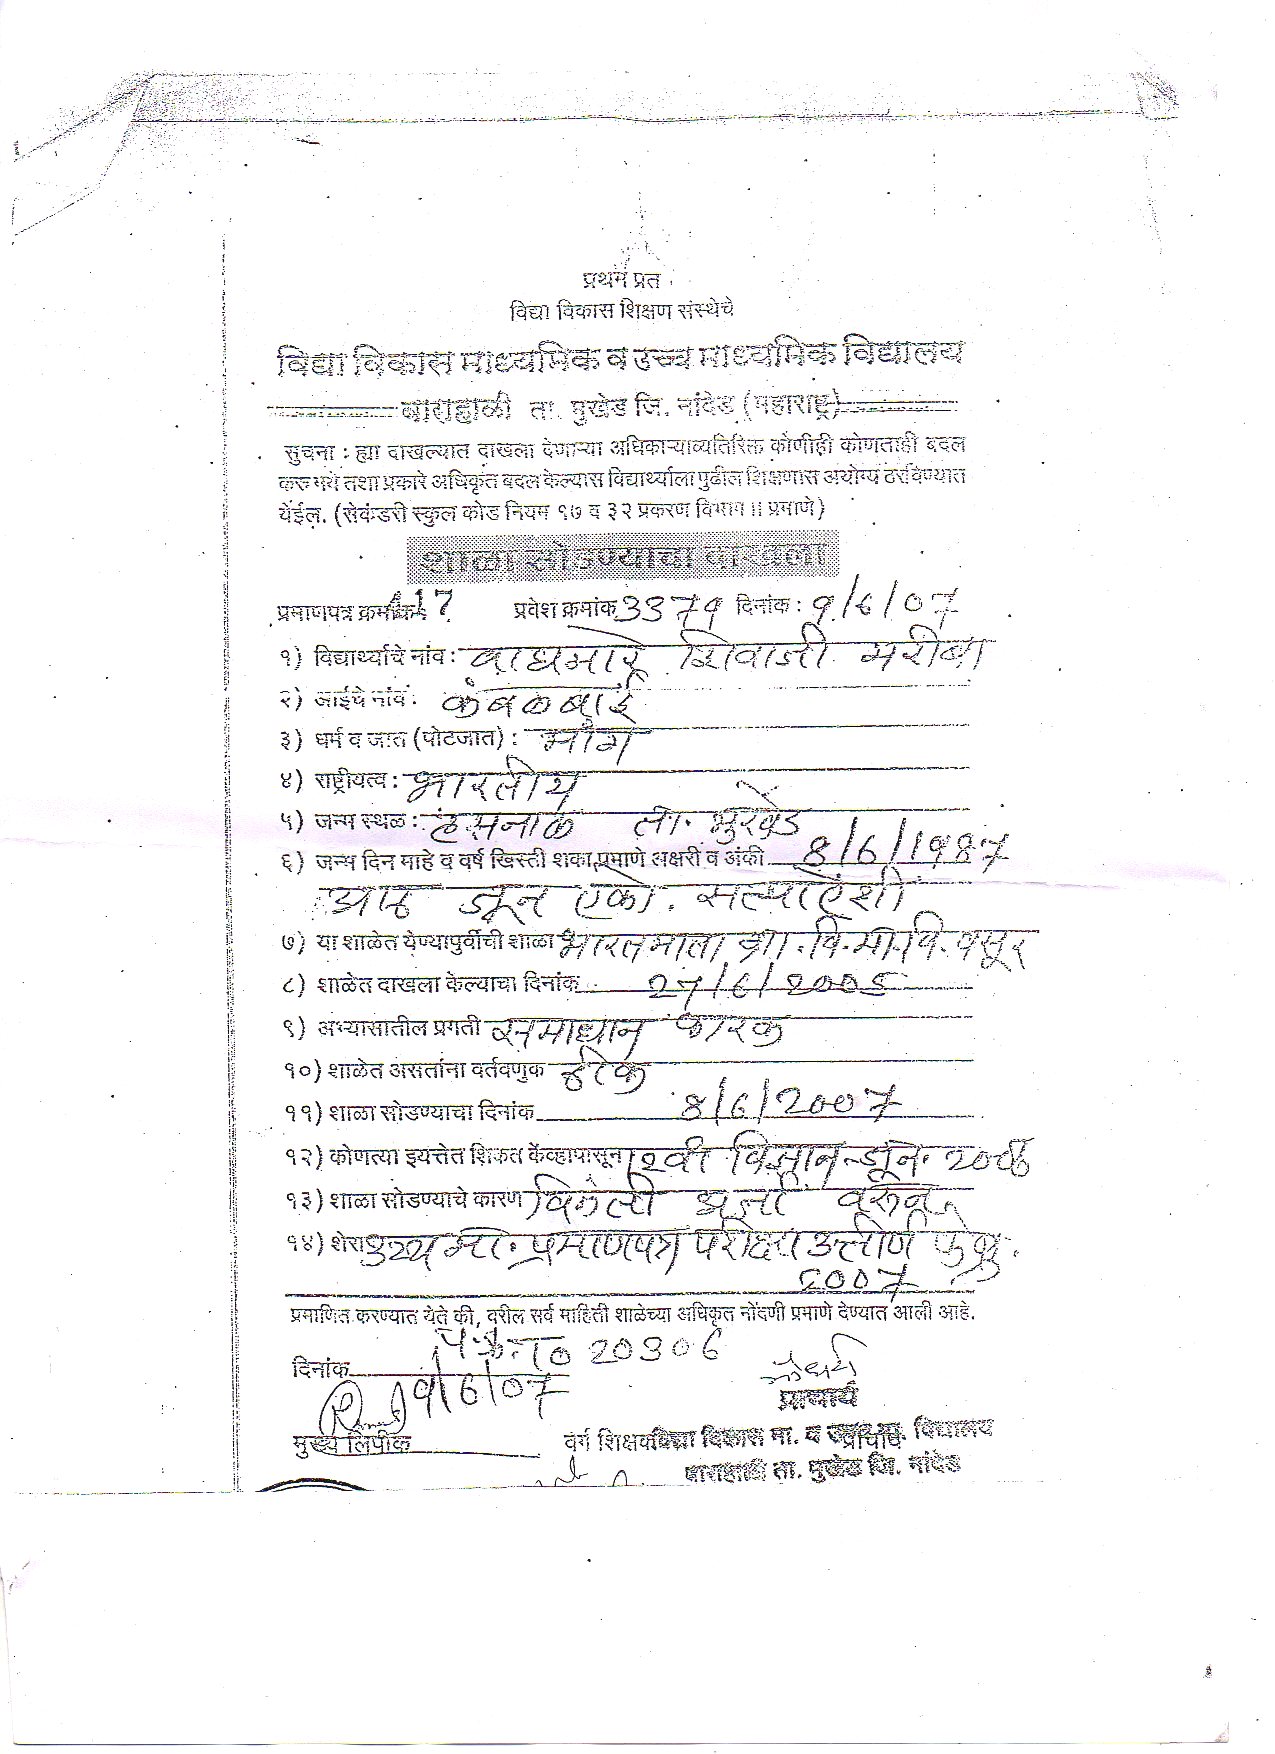 प्रथम प्रत
विद्या विकास शिक्षण संस्थेचे
विद्या विकास माध्यमिक व उच्च माध्यमिक विद्यालय
बाराहाळी ता. मुखेड जि. नांदेड (महाराष्ट्र)
सुचना : ह्या दाखल्यात दाखला देणाऱ्या अधिकाऱ्याव्यतिरिक्त कोणीही कोणताही बदल
करु नये तशा प्रकारे अधिकृत बदल केल्यास विद्यार्थ्याला पुढील शिक्षणास अयोग्य ठरविण्यात
येईल. (सेकंडरी स्कुल कोड नियम १७ व ३२ प्रकरण विभाग ।। प्रमाणे)
शाळा सोडण्याचा दाखला
प्रमाणपत्र क्रमांक 117 प्रवेश क्रमांक 3379 दिनांक : 9/6/07
१) विद्यार्थ्याचे नांव : वाघमारे शिवाजी मरीबा
२) आईचे नांव : कुंबळबाई
३) धर्म व जात (पोटजात) : मांग
४) राष्ट्रीयत्व : भारतीय
५) जन्म स्थळ : हसनाळ ता. मुखेड
६) जन्म दिन माहे व वर्ष खिस्ती शका प्रमाणे अक्षरी व अंकी 8/6/1987
आठ जून एको. सत्याऐंशी
७) या शाळेत येण्यापुर्वीची शाळा भारतमाता वसूर
८) शाळेत दाखला केल्याचा दिनांक 27/6/2005
९) अभ्यासातील प्रगती समाधान कारक
१०) शाळेत असतांना वर्तवणुक ठीक
११) शाळा सोडण्याचा दिनांक 8/6/2007
१२) कोणत्या इयत्तेत शिकत केंव्हापासून 12वी विज्ञान जून. 2006
१३) शाळा सोडण्याचे कारण विनंती अर्जा वरून.
१४) शेरा उच्च मा. प्रमाणपत्र परीक्षा उत्तीर्ण फेब्रु.
2007
प्रमाणित करण्यात येते की, वरील सर्व माहिती शाळेच्या अधिकृत नोंदणी प्रमाणे देण्यात आली आहे.
20306
दिनांक 9/6/07
प्राचार्य
मुख्य लिपीक वर्ग शिक्षक विद्या विकास मा. व उच्च मा. विद्यालय
बाराहाळी ता. मुखेड जि. नांदेड